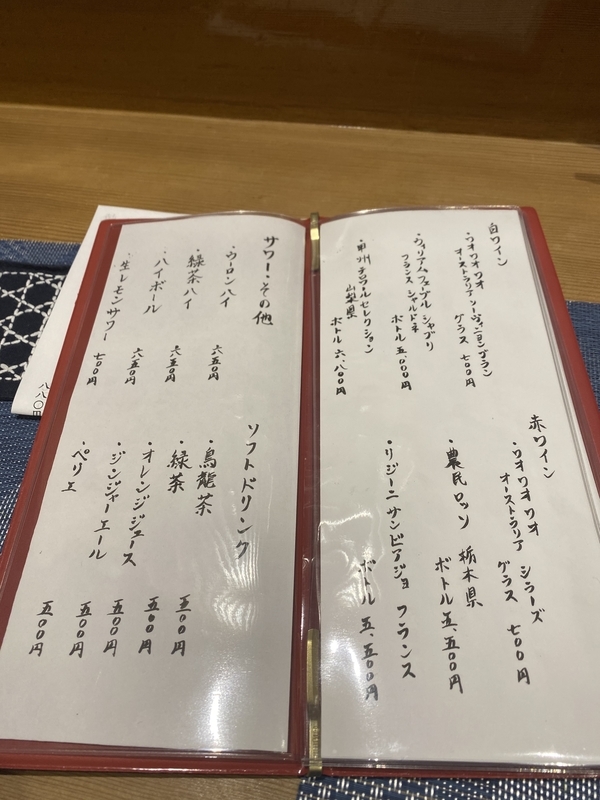 白ワイン
・ワオワオワオ
オーストラリア ソーヴィニヨンブラン
グラス 七〇〇円
・ウィリアムフェーブル シャブリ
フランス シャルドネ
ボトル 五、〇〇〇円
・甲州テロワールセレクション
山梨県
ボトル 六、八〇〇円
赤ワイン
・ワオワオワオ シラーズ
オーストラリア グラス 七〇〇円
・農民ロッソ 栃木県
ボトル 五、五〇〇円
・リジーニ サンビアジョ フランス
ボトル 五、五〇〇円
サワー・その他
・ウーロンハイ 六五〇円
・緑茶ハイ 六五〇円
・ハイボール 六五〇円
・生レモンサワー 七〇〇円
ソフトドリンク
・烏龍茶 五〇〇円
・緑茶 五〇〇円
・オレンジジュース 五〇〇円
・ジンジャーエール 五〇〇円
・ペリエ 五〇〇円
八八〇円